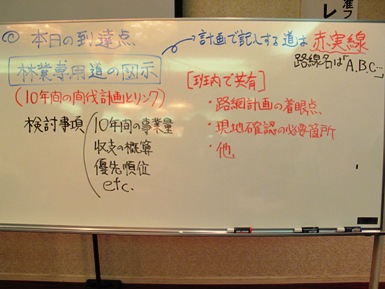 ◎ 本日の到達点
林業専用道の図示
(10年間の間伐計画とリンク)
検討事項
10年間の事業量
収支の概算
優先順位
etc.
計画で記入する道は赤実線
路線名は「A,B,C…」
[班内で共有]
・路網計画の着眼点
・現地確認の必要箇所
・他